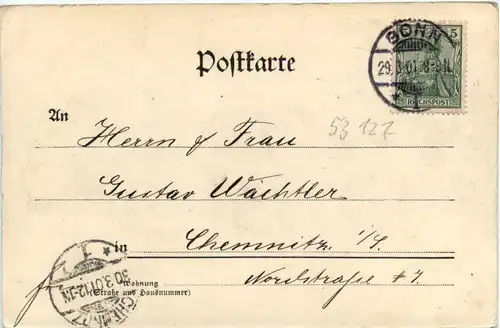 BONN
29.3.01. 8-9N.
5
REICHSPOST
Postkarte
53 127
An
Herrn & Frau
Gustav Wächtler
in Chemnitz i/S.
Wohnung
(Straße und Hausnummer)
Nordstraße #7
CHEMNITZ
30.3.01.12-1N
1